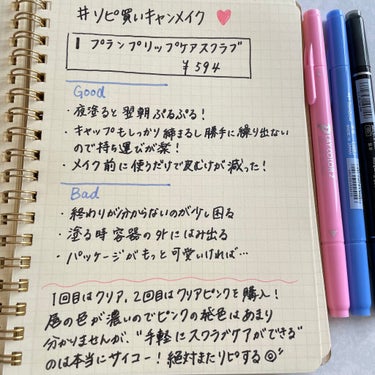 #リピ買いキャンメイク
1 プランプリップケアスクラブ
¥594
Good
・夜塗ると翌朝ぷるぷる!
・キャップもしっかり締まるし勝手に繰り出ない
ので持ち運びが楽!
・メイク前に使うだけで皮むけが減った!
Bad
・終わりが分からないのが少し困る
・塗る時容器の外にはみ出る
・パッケージがもっと可愛いければ…
1回目はクリア、2回目はクリアピンクを購入!
唇の色が濃いのでピンクの発色はあまり
分かりませんが、"手軽にスクラブケアができる"
のは本当にサイコー!絶対またリピする◎